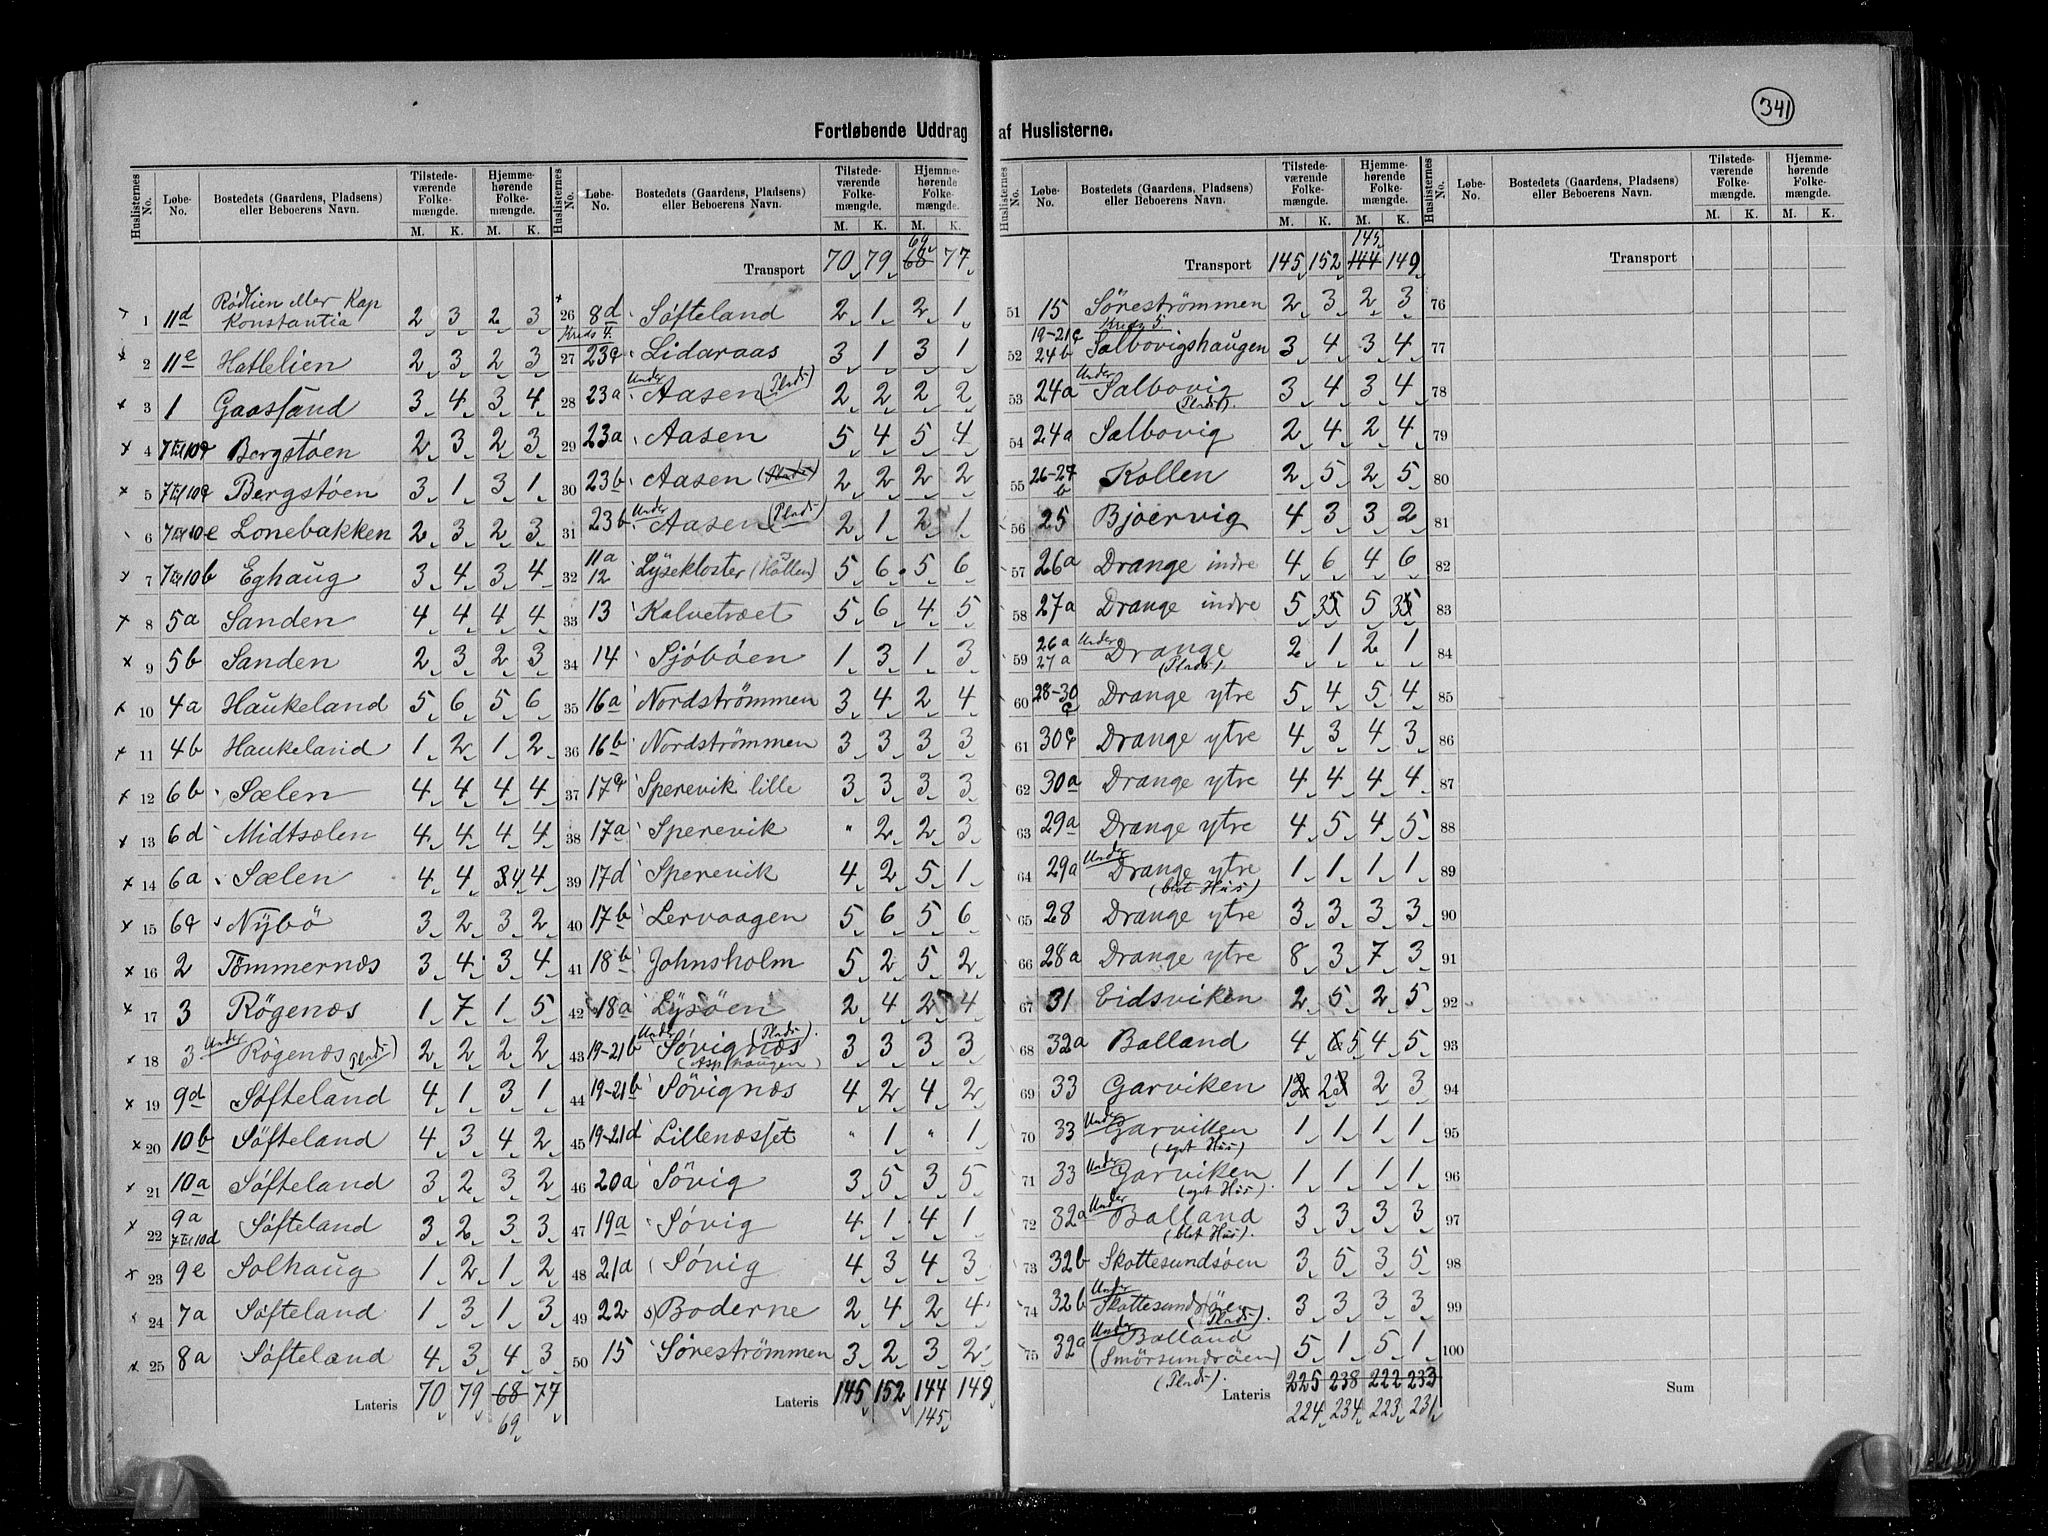 341
Fortløbende Uddrag af Huslisterne.
Huslisternes No. | Løbe-No. | Bostedets (Gaardens, Pladsens) eller Beboerens Navn. | Tilstedeværende Folkemængde. M. K. | Hjemmehørende Folkemængde. M. K.
1 11d Rødlien eller Kap Konstantia 2 3 2 3
2 11e Hatlelien 2 3 2 3
3 1 Gaassand 3 4 3 4
4 7 til 10c Bergstøen 2 3 2 3
5 7 til 10c Bergstøen 3 1 3 1
6 7 til 10e Lonebakken 2 3 2 3
7 7 til 10b Eghaug 3 4 3 4
8 5a Sanden 4 4 4 4
9 5b Sanden 2 3 2 3
10 4a Haukeland 5 6 5 6
11 4b Haukeland 1 2 1 2
12 6b Sælen 4 4 4 4
13 6d Midtsælen 4 4 4 4
14 6a Sælen 4 4 3 4 4
15 6c Nybö 3 2 3 2
16 2 Tømmernæs 3 4 3 4
17 3 Rögenæs 1 7 1 5
18 3 Under Rögenæs (Plads) 2 2 2 2
19 9d Søfteland 4 1 3 1
20 10b Søfteland 4 3 4 2
21 10a Søfteland 3 2 3 2
22 9a 7 til 10d Søfteland 3 2 3 3
23 9e Solhaug 1 2 1 2
24 7a Søfteland 1 3 1 3
25 8a Søfteland 4 3 4 3
Lateris 70 79 68 77
69
Huslisternes No. | Løbe-No. | Bostedets (Gaardens, Pladsens) eller Beboerens Navn. | Tilstedeværende Folkemængde. M. K. | Hjemmehørende Folkemængde. M. K.
69
Transport 70 79 68 77
26 8d Søfteland 2 1 2 1
Kreds 4.
27 23c Lidaraas 3 1 3 1
28 23a Under Aasen (Plads) 2 2 2 2
29 23a Aasen 5 4 5 4
30 23b Aasen (Plads) 2 2 2 2
31 23b Under Aasen (Plads) 2 1 2 1
32 11a 12 Lysekloster (Hollen) 5 6 5 6
33 13 Kalvetræet 5 6 4 5
34 14 Sjöböen 1 3 1 3
35 16a Nordströmmen 3 4 2 4
36 16b Nordströmmen 3 3 3 3
37 17c Sperevik lille 3 3 3 3
38 17a Sperevik " 2 2 3
39 17d Sperevik 4 2 5 1
40 17b Lervaagen 5 6 5 6
41 18b Johnsholm 5 2 5 2
42 18a Lysöen 2 4 2 4
43 19-21b Under Søvignæs (Plads) (Asphaugen) 3 3 3 3
44 19-21b Sövignæs 4 2 4 2
45 19-21d Lillenæsset " 1 " 1
46 20a Sövig 3 5 3 5
47 19a Sövig 4 1 4 1
48 21a Sövig 4 3 4 3
49 22 Boderne 2 4 2 4
50 15 Sørestrømmen 3 2 3 2
Lateris 145 152 144 149
145
Huslisternes No. | Løbe-No. | Bostedets (Gaardens, Pladsens) eller Beboerens Navn. | Tilstedeværende Folkemængde. M. K. | Hjemmehørende Folkemængde. M. K.
145
Transport 145 152 144 149
51 15 Sørestrømmen 2 3 2 3
Kreds 5.
52 19-21c 24b Salbovigshaugen 3 4 3 4
53 24a Under Salbovig (Plads). 3 4 3 4
54 24a Salbovig 2 4 2 4
55 26-27b Kollen 2 5 2 5
56 25 Bjoervig 4 3 3 2
57 26a Drange indre 4 6 4 6
58 27a Drange indre 5 3 5 5 3 5
59 26a 27a Under Drange (Plads). 2 1 2 1
60 28-30c Drange ytre 5 4 5 4
61 30c Drange ytre 4 3 4 3
62 30a Drange ytre 4 4 4 4
63 29a Drange ytre 4 5 4 5
64 29a Under Drange ytre (blot Hus) 1 1 1 1
65 28 Drange ytre 3 3 3 3
66 28a Drange ytre 8 3 7 3
67 31 Eidsviken 2 5 2 5
68 32a Balland 4 6 5 4 5
69 33 Garviken 1 2 2 3 2 3
70 33 Under Garviken (eget Hus) 1 1 1 1
71 33 Under Garviken (eget Hus). 1 1 1 1
72 32a Under Balland (blot Hus). 3 3 3 3
73 32b Skottesundsøen 3 5 3 5
74 32b Under Skottesundsöen (Plads). 3 3 3 3
75 32a Under Balland (Smörsundsöen) (Plads). 5 1 5 1
Lateris 225 238 222 233
224 234 223 231
Huslisternes No. | Løbe-No. | Bostedets (Gaardens, Pladsens) eller Beboerens Navn. | Tilstedeværende Folkemængde. M. K. | Hjemmehørende Folkemængde. M. K.
Transport
76
77
78
79
80
81
82
83
84
85
86
87
88
89
90
91
92
93
94
95
96
97
98
99
100
Sum